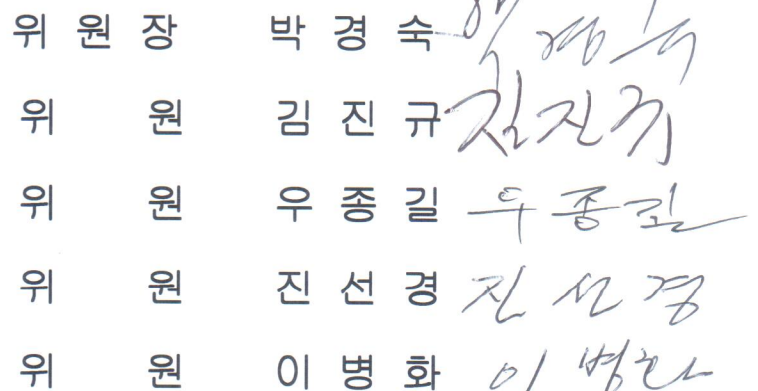 위 원 장 박 경 숙 박경숙
위 원 김 진 규 김진규
위 원 우 종 길 우종길
위 원 진 선 경 진선경
위 원 이 병 화 이병화